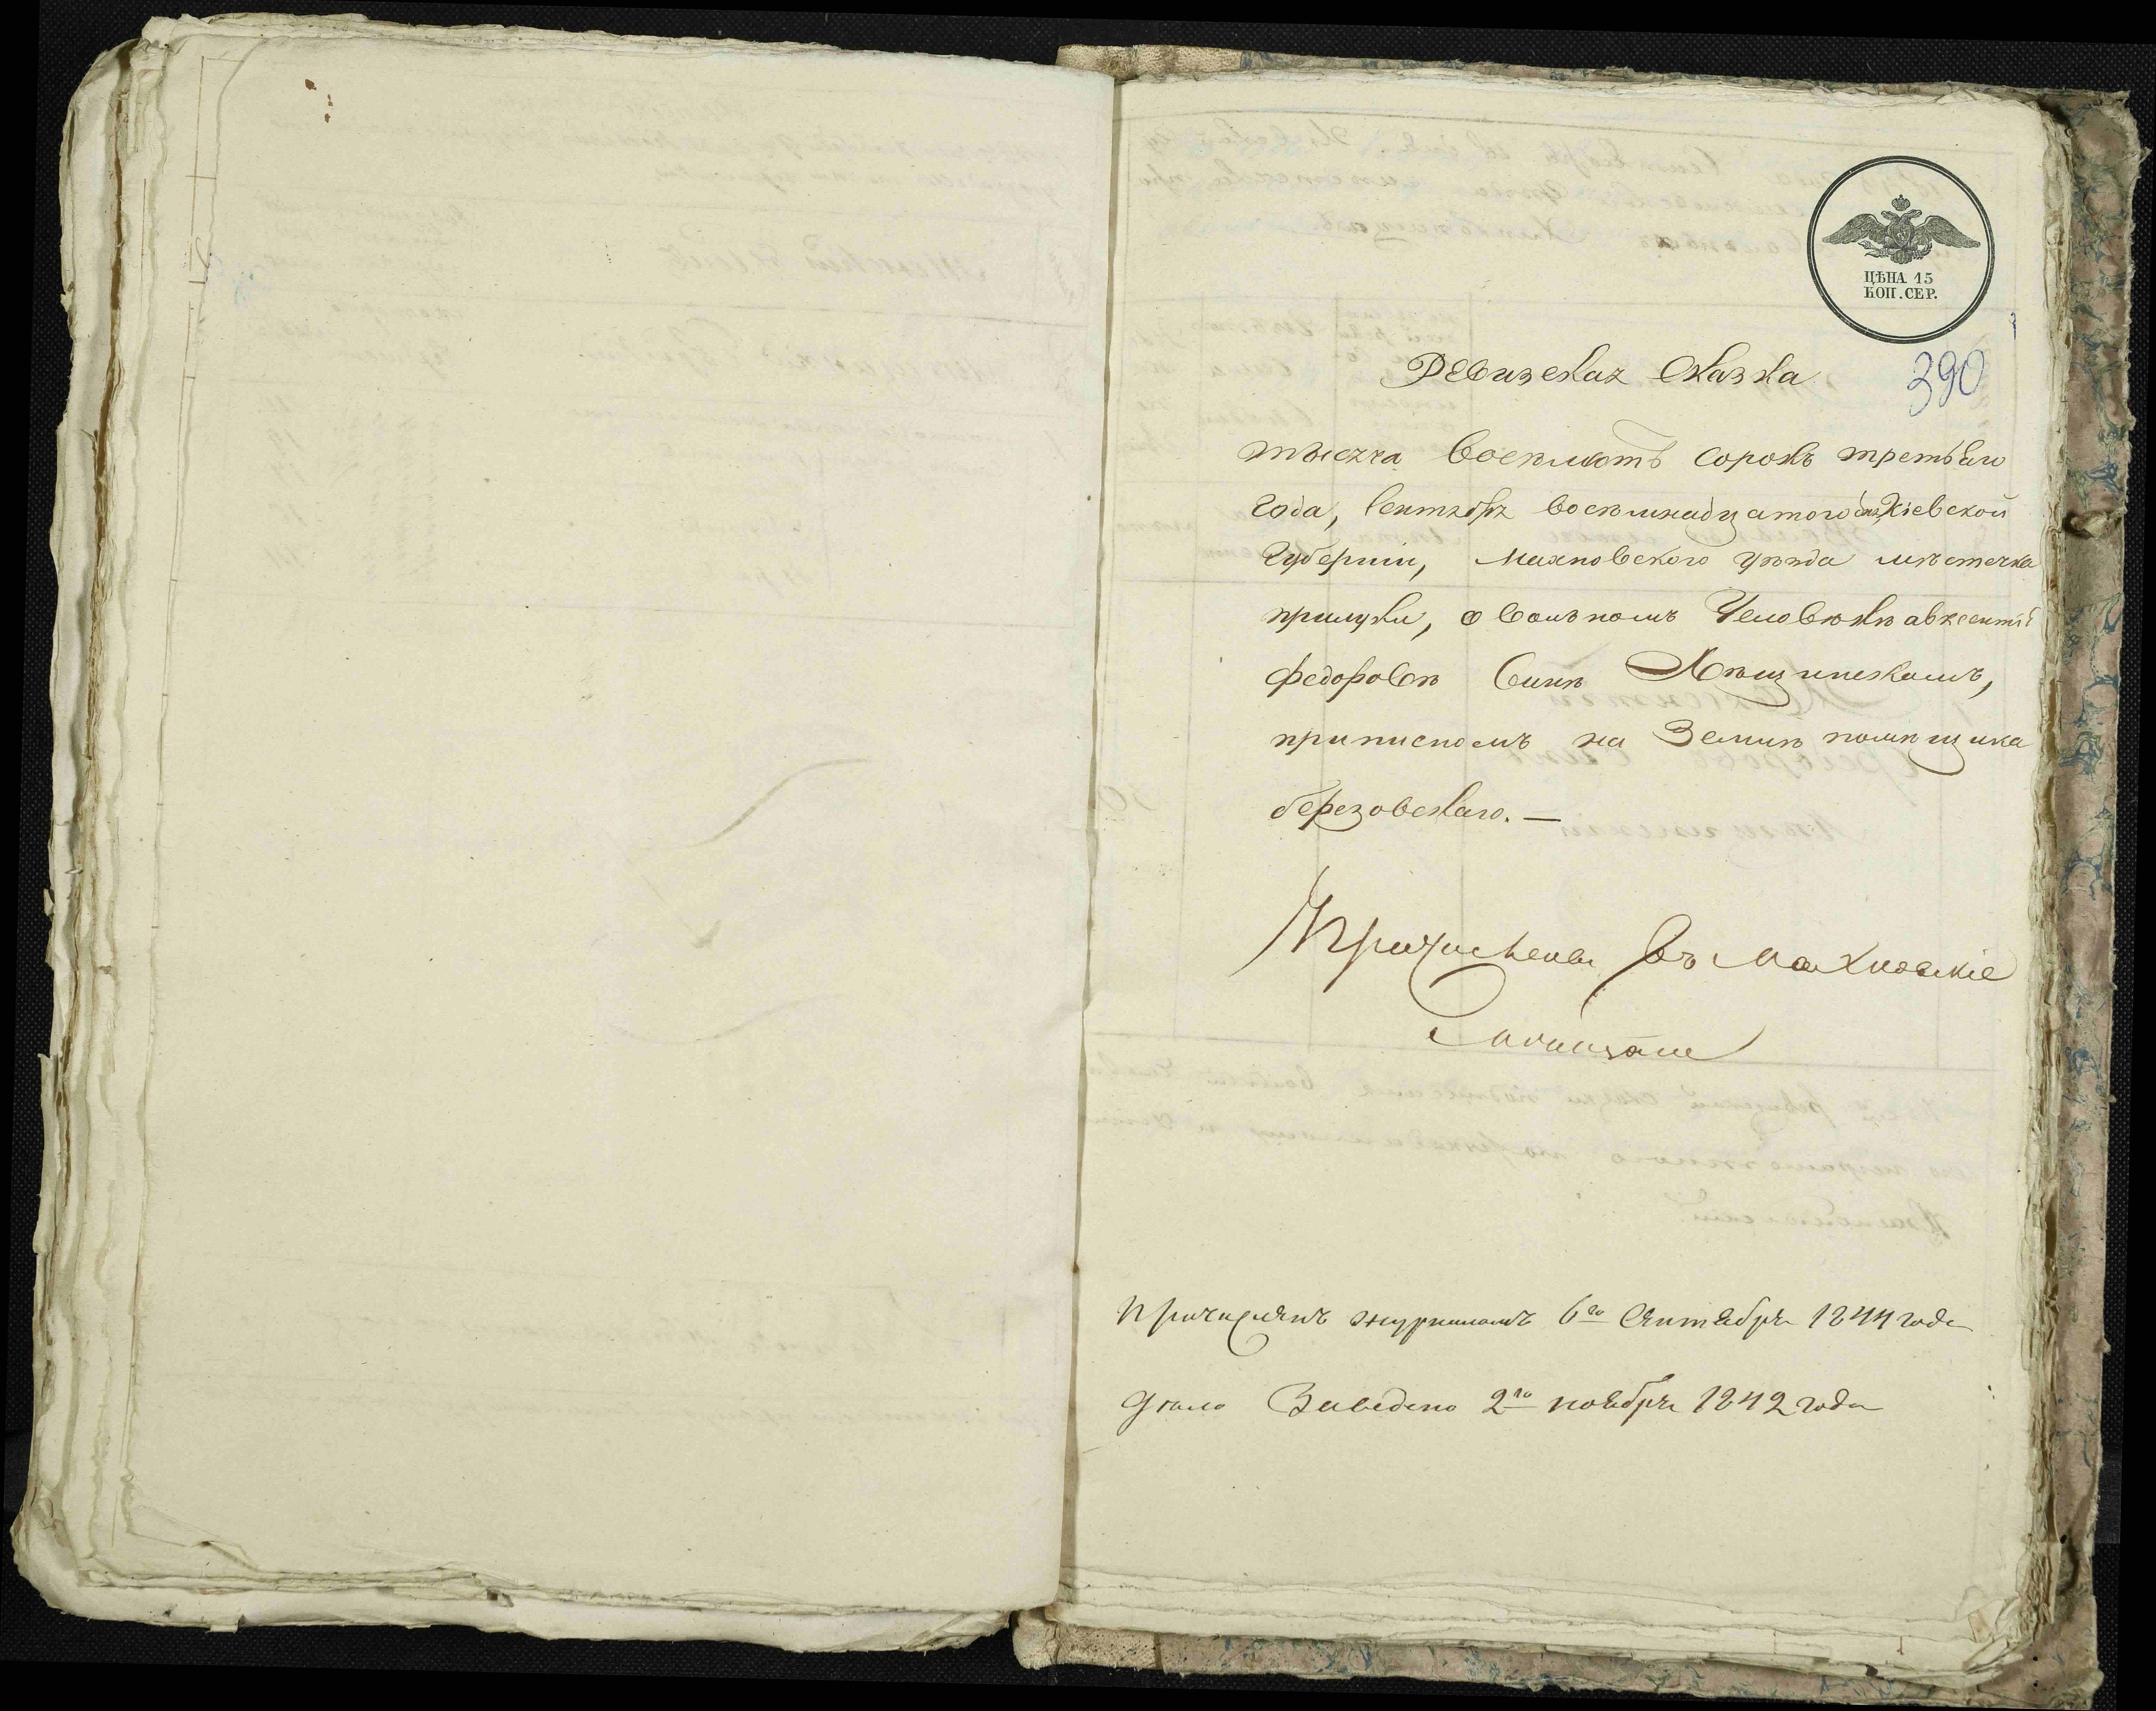 ЦѢНА 15
КОП. СЕР.
390
Ревизская Сказка
тысяча восемьсотъ сорокъ третьаго
года, сентября восемнадцатого дня, Кіевской
Губерніи, Махновского уѣзда мѣстечка
прилуки, о вольномъ Человѣкѣ авксентій
федоровѣ Синѣ Лѣщинскомъ,
приписномъ на Земли помѣщика
березовскаго. —
Причисленъ въ Махновскіе
Причисленъ журналомъ 6го Сентября 1844 года
Дѣло Заведено 2го ноября 1842 года